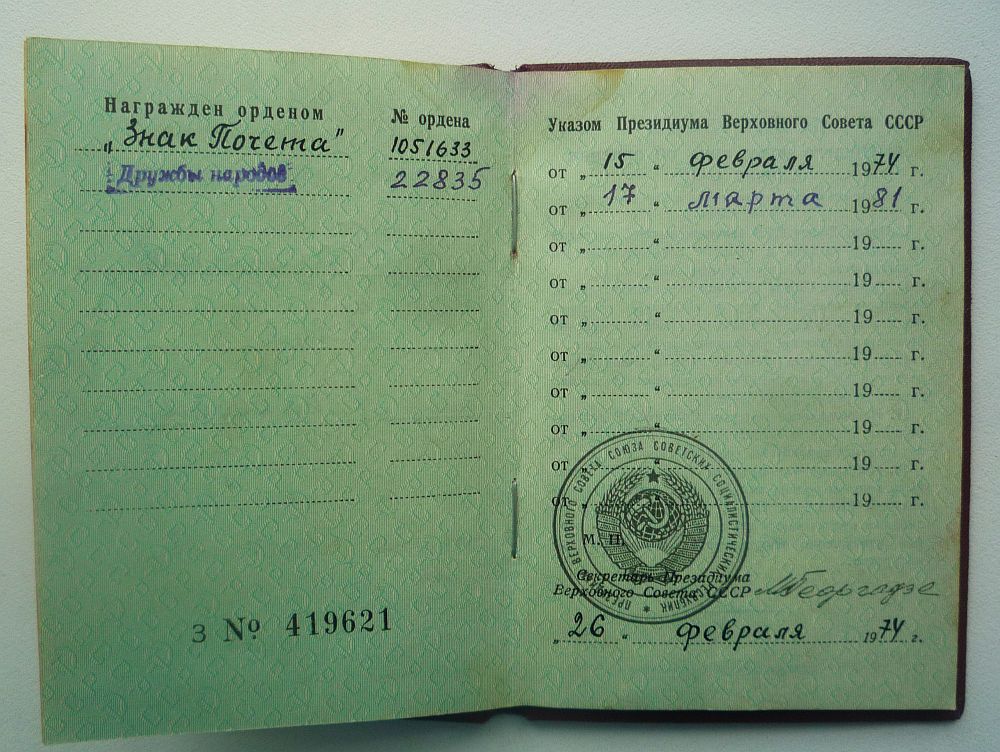 Награжден орденом
„Знак Почета"
Дружбы народов
№ ордена
1051633
22835
З № 419621
Указом Президиума Верховного Совета СССР
от „ 15 “ февраля 1974 г.
от „ 17 “ марта 1981 г.
от „ “ 19 г.
от „ “ 19 г.
от „ “ 19 г.
от „ “ 19 г.
от „ “ 19 г.
от „ “ 19 г.
от „ “ 19 г.
от „ “ 19 г.
ПРЕЗИДИУМ ВЕРХОВНОГО СОВЕТА СОЮЗА СОВЕТСКИХ СОЦИАЛИСТИЧЕСКИХ РЕСПУБЛИК
М. П.
Секретарь Президиума
Верховного Совета СССР МГеоргадзе
„ 26 “ февраля 1974 г.